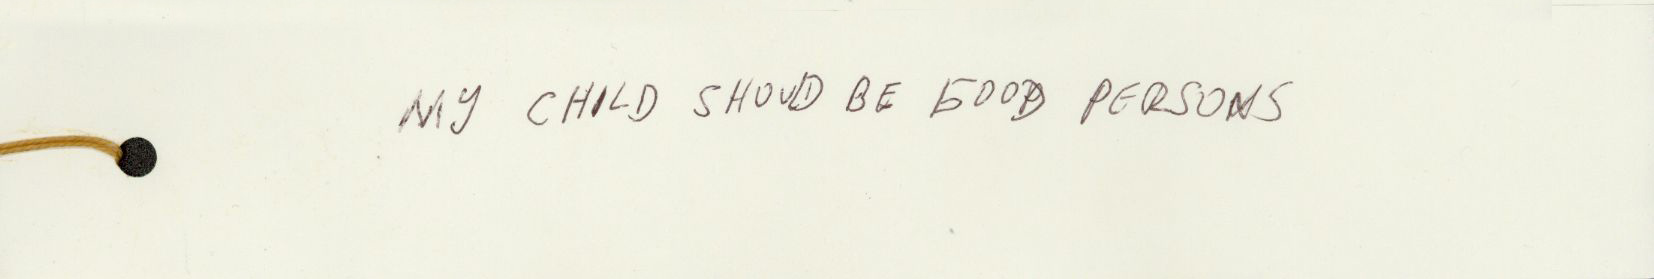 MY CHILD SHOUD BE GOOD PERSONS